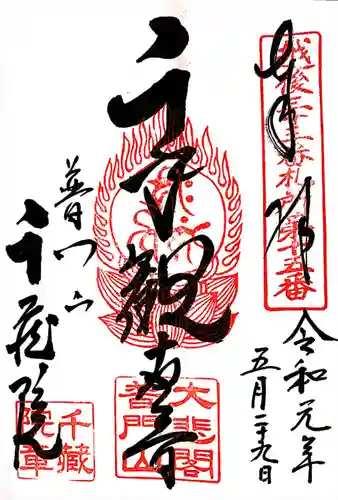 奉拝
越後三十三番札所第十五番
令和元年
五月二十九日
千手観世音
大悲閣
普門山
普門山
千蔵院
千藏
院章